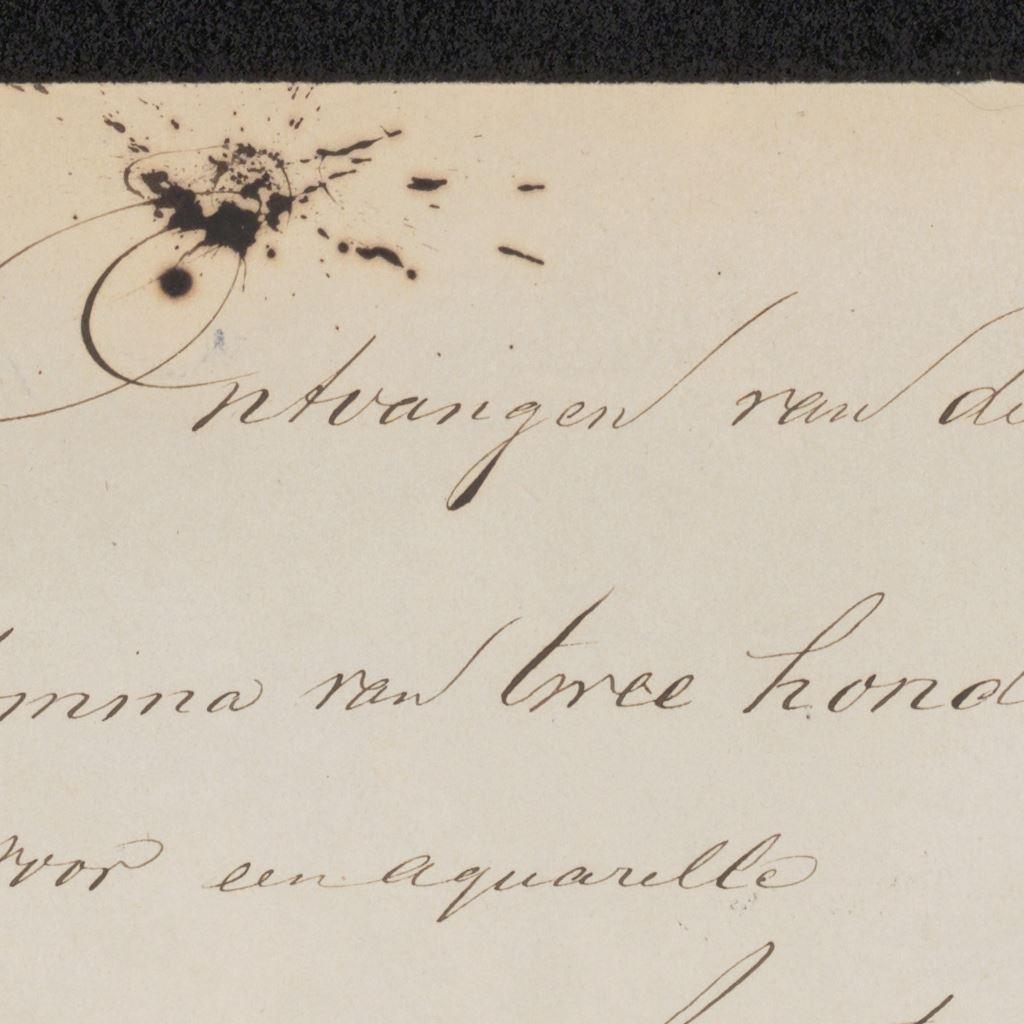 Ontvangen van de
omma van twee hond
voor een aquarelle